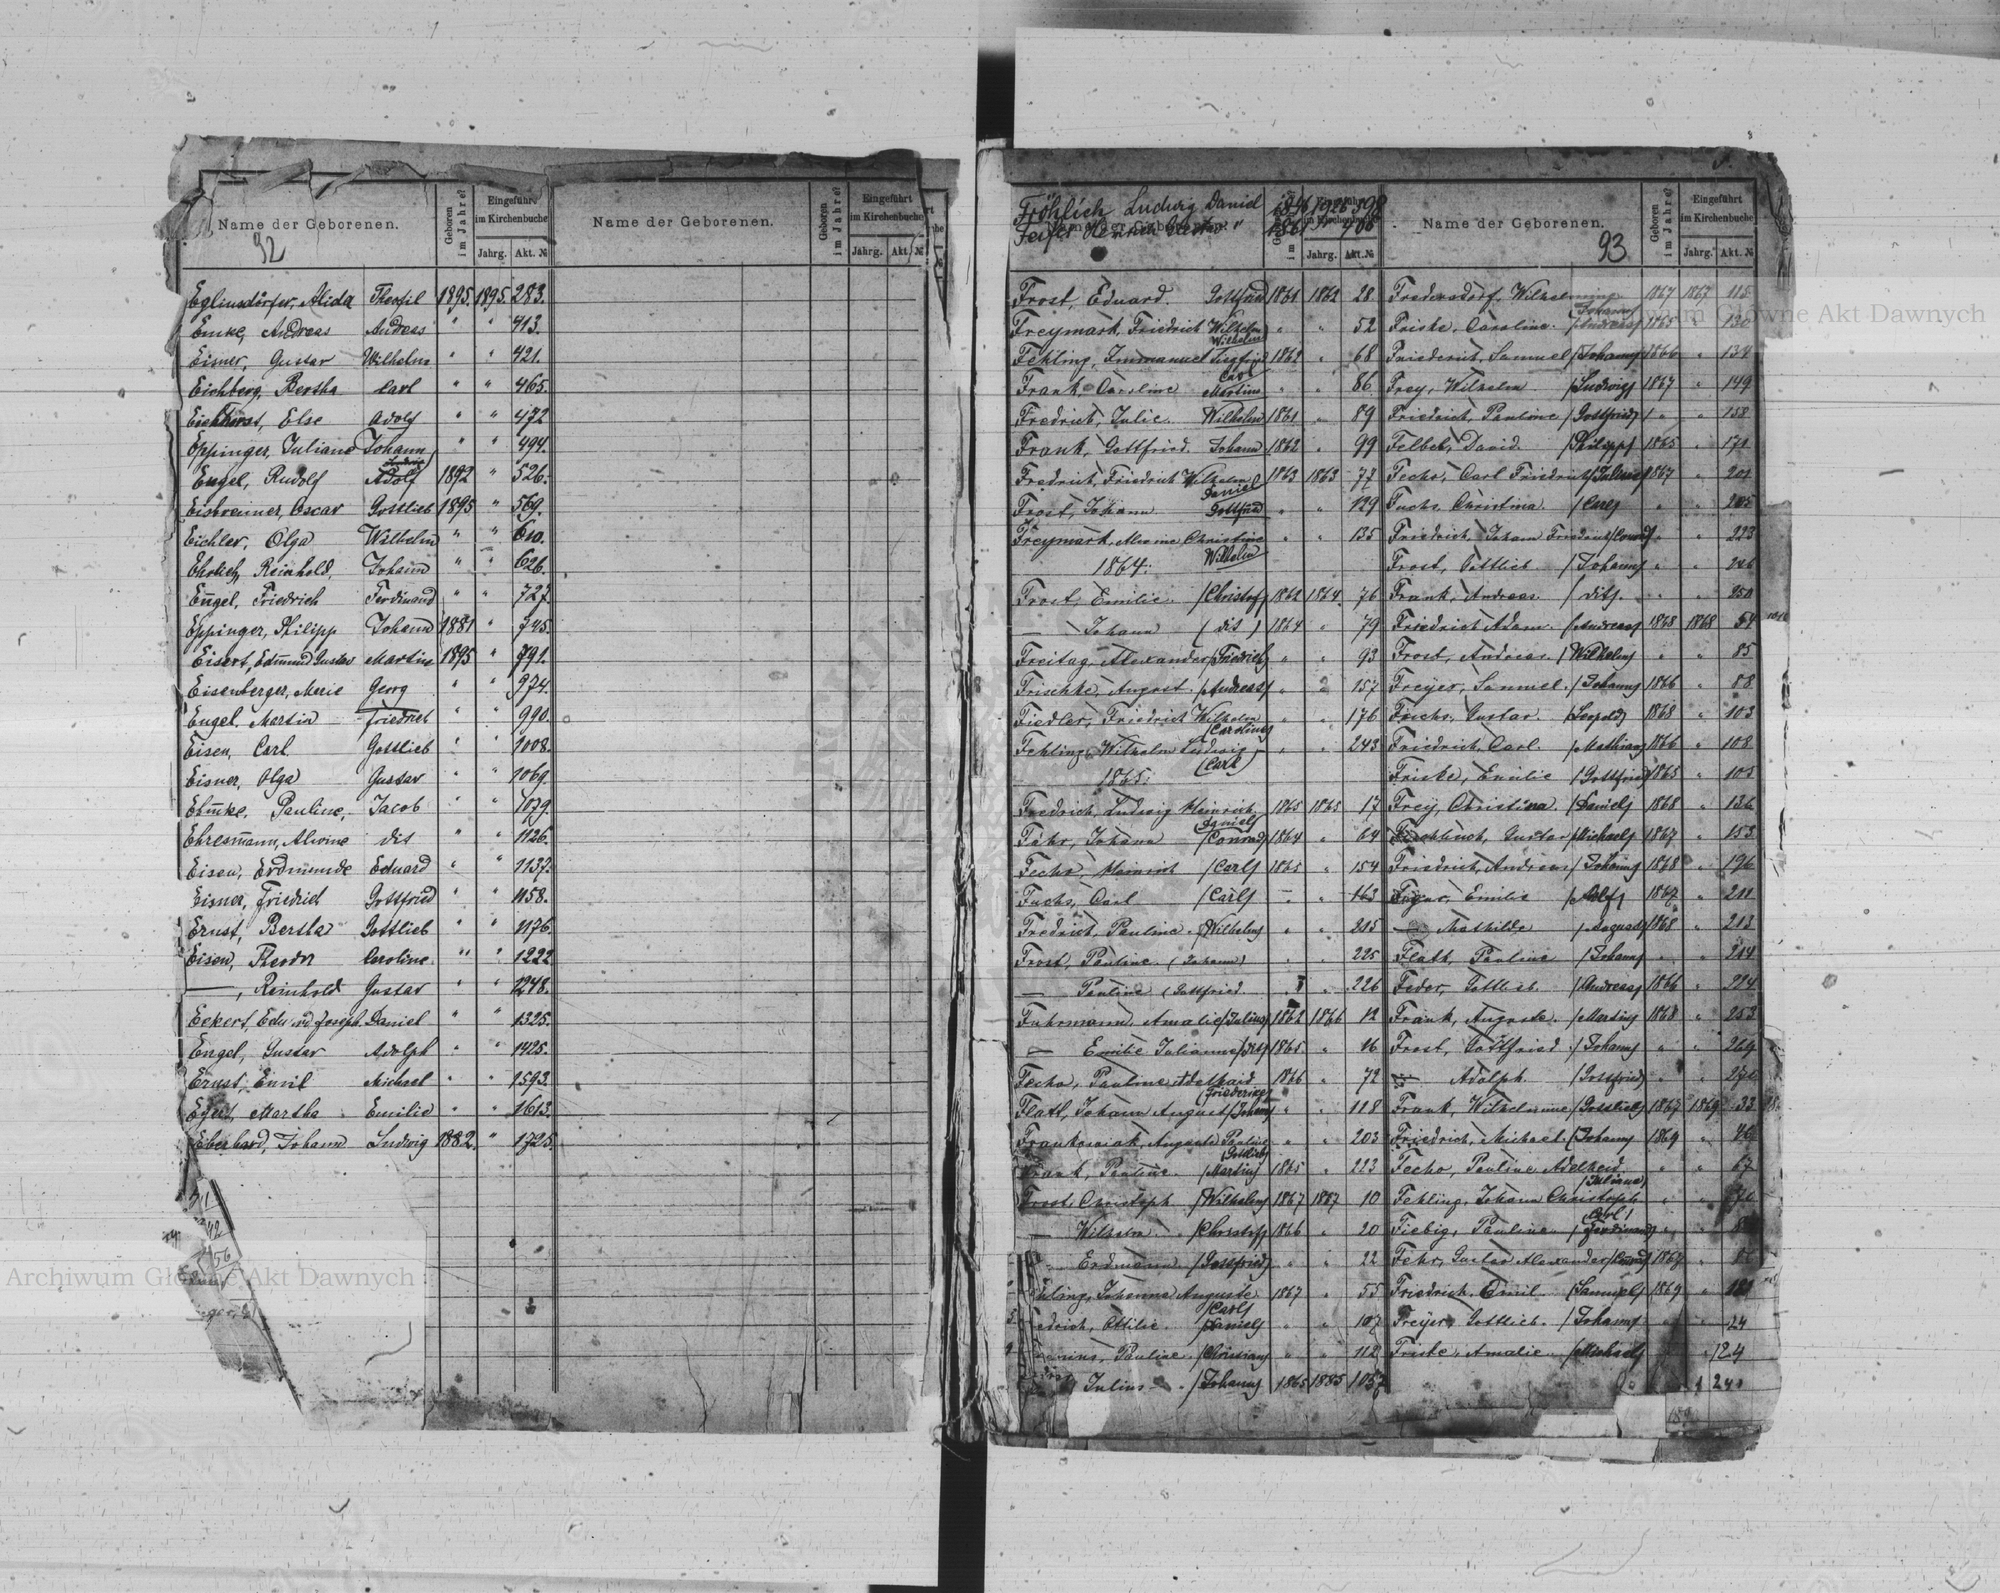 Name der Geborenen.
Geboren im Jahre?
Eingeführt im Kirchenbuche
Jahrg. Akt. №
92
Eglinsdörfer, Alida Theofil 1895. 1895. 283.
Emke, Andreas Andreas " " 413.
Eisner, Gustav Wilhelm " " 421.
Eichberg, Bertha Carl " " 465.
Eichhorst, Else Adolf " " 472
Eppinger, Juliane Johann " " 494.
Engel, Rudolf Adolf 1892 " 526.
Eisbrenner, Oscar Gottlieb 1895 " 569.
Eichler, Olga Wilhelm " " 610.
Ehrlich, Reinhold, Johann " " 626.
Engel, Friedrich Ferdinand " " 727.
Eppinger, Philipp Johann 1881 " 745.
Eisert, Edmund Gustav Martin 1895 " 791.
Eisenberger, Marie Georg " " 974.
Engel, Martin Friedrich " " 990.
Eisen, Carl Gottlieb " " 1008.
Eisner, Olga Gustav " " 1069.
Ehmke, Pauline, Jacob " " 1079.
Ehresmann, Alwine dis " " 1126.
Eisen, Erdmunde Eduard " " 1137.
Eisner, Friedrich Gottfried " " 1158.
Ernst, Bertha Gottlieb " " 1176.
Eisen, Theodor Caroline " " 1222
—, Reinhold Gustav " " 1248.
Eckert, Eduard Joseph, Daniel " " 1325.
Engel, Gustav Adolph " " 1425.
Ernst, Emil Michael " " 1593.
Egert, Martha Emilie " " 1613.
Eberhard, Johann Ludwig 1882. " 1725.
Name der Geborenen.
Geboren im Jahre?
Eingeführt im Kirchenbuche
Jahrg. Akt. №
Fröhlich Ludwig Daniel
Name der Geborenen.
Frost, Eduard. Gottfried 1861 1862 28
Freymark, Friedrich Wilhelm " " 52
Wilhelm
Fehling, Immanuel Siegfried 1862 " 68
Carl
Frank, Caroline Martin " " 86
Fredrich, Julie Wilhelm 1861 " 89
Frank, Gottfried. Johann 1862 " 99
Fredrich, Friedrich Wilhelm 1863 1863 77
Daniel
Frost, Johann Gottfried " " 129
Freymark, Alwine Christine " " 135
Wilhelm
1864.
Frost, Emilie. (Christof) 1862 1864. 76
— Johann (dis) 1864 " 79
Freitag, Alexander (Friedrich) " " 93
Frischke, August. (Andreas) " " 157
Fiedler, Friedrich Wilhelm " " 176
(Caroline)
Fehling, Wilhelm Ludwig " " 243
(Carl)
1865.
Fredrich, Ludwig Heinrich 1865 1865 17
(Daniel)
Fähr, Johann (Conrad) 1864 " 64
Fecho, Heinrich (Carl) 1865 " 154
Fuchs, Carl (Carl) — " 163
Fredrich, Pauline (Wilhelm) " " 215
Frost, Pauline. (Johann) " " 225
— Pauline (Gottfried " " 226
Fuhrmann, Amalie (Julius) 1862 1866 12
— Emilie Julianne (dis) 1865 " 16
Fecho, Pauline Adelhaid 1866 " 72
(Friederike)
Flatt, Johann August (Johann) " " 118
Frankowiak, Auguste Pauline " " 203
(Gottlieb)
Frank, Pauline. (Martin) 1865 " 223
Frost, Christoph (Wilhelm) 1867 1867 10
— Wilhelm (Christof) 1866 " 20
Erdmann (Gottfried) " " 22
Johanna Auguste 1867 " 55
(Carl)
Ottilie (Daniel) " " 107
Pauline. (Christian) " " 112
Julius (Johann) 1865 1885 1057
Name der Geborenen.
93
Geboren im Jahre?
Eingeführt im Kirchenbuche
Jahrg. Akt. №
Fredersdorf, Wilhelmine 1867 1867 115
(Johann)
Friske, Caroline. (Andreas) 1865 " 130
Friederich, Samuel (Johann) 1866 " 134
Frey, Wilhelm (Ludwig) 1867 " 149
Friedrich, Pauline (Gottfried) " " 158
Felbel, David. (Philipp) 1865 " 171
Fecho, Carl Friedrich (Julius) 1867 " 201
Fuchs, Christina. (Carl) " " 205
Friedrich, Johann Friedrich (Conrad) " " 223
Frost, Gottlieb (Johann) " " 246
Frank, Andreas (dis). " " 250
Friedrich Adam. (Andreas) 1868 1868 54
Frost, Andreas. (Wilhelm) " " 85
Freyer, Samuel. (Johann) 1866 " 88
Fuchs, Gustav. (Leopold) 1868 " 103
Friedrich, Carl. (Mathias) 1866 " 108
Friske, Emilie (Gottfried) 1865 " 105
Frey, Christina. (Daniel) 1868 " 136
Gustav (Michael) 1867 " 153
Friedrich, Andreas (Johann) 1868 " 196
Emilie (Adolf) 1867 " 211
— Mathilde (August) 1868 " 213
Flatt, Pauline (Johann) " " 214
Feder, Gottlieb. (Andreas) 1866 " 224
Frank, Auguste. (Martin) 1868 " 253
Frost, Gottfried. (Johann) " " 264
— Adolph. (Gottfried) " "
Frank, Wilhelmine (Gottlieb) 1867 1869 33
Friedrich, Michael. (Johann) 1869 " 46
Fecho, Pauline Adelheid. " " 67
(Juliane)
Fehling, Johann Christoph " "
(Carl)
Fiebig, Pauline (Ferdinand) " "
Fehr, Gustav Alexander (Conrad) 1869 " 86
Friedrich, Emil. (Samuel) 1869 "
Freyer, Gottlieb. (Johann) " 24
Friske, Amalie (Michael) " 124
240
Archiwum Główne Akt Dawnych
Archiwum Główne Akt Dawnych